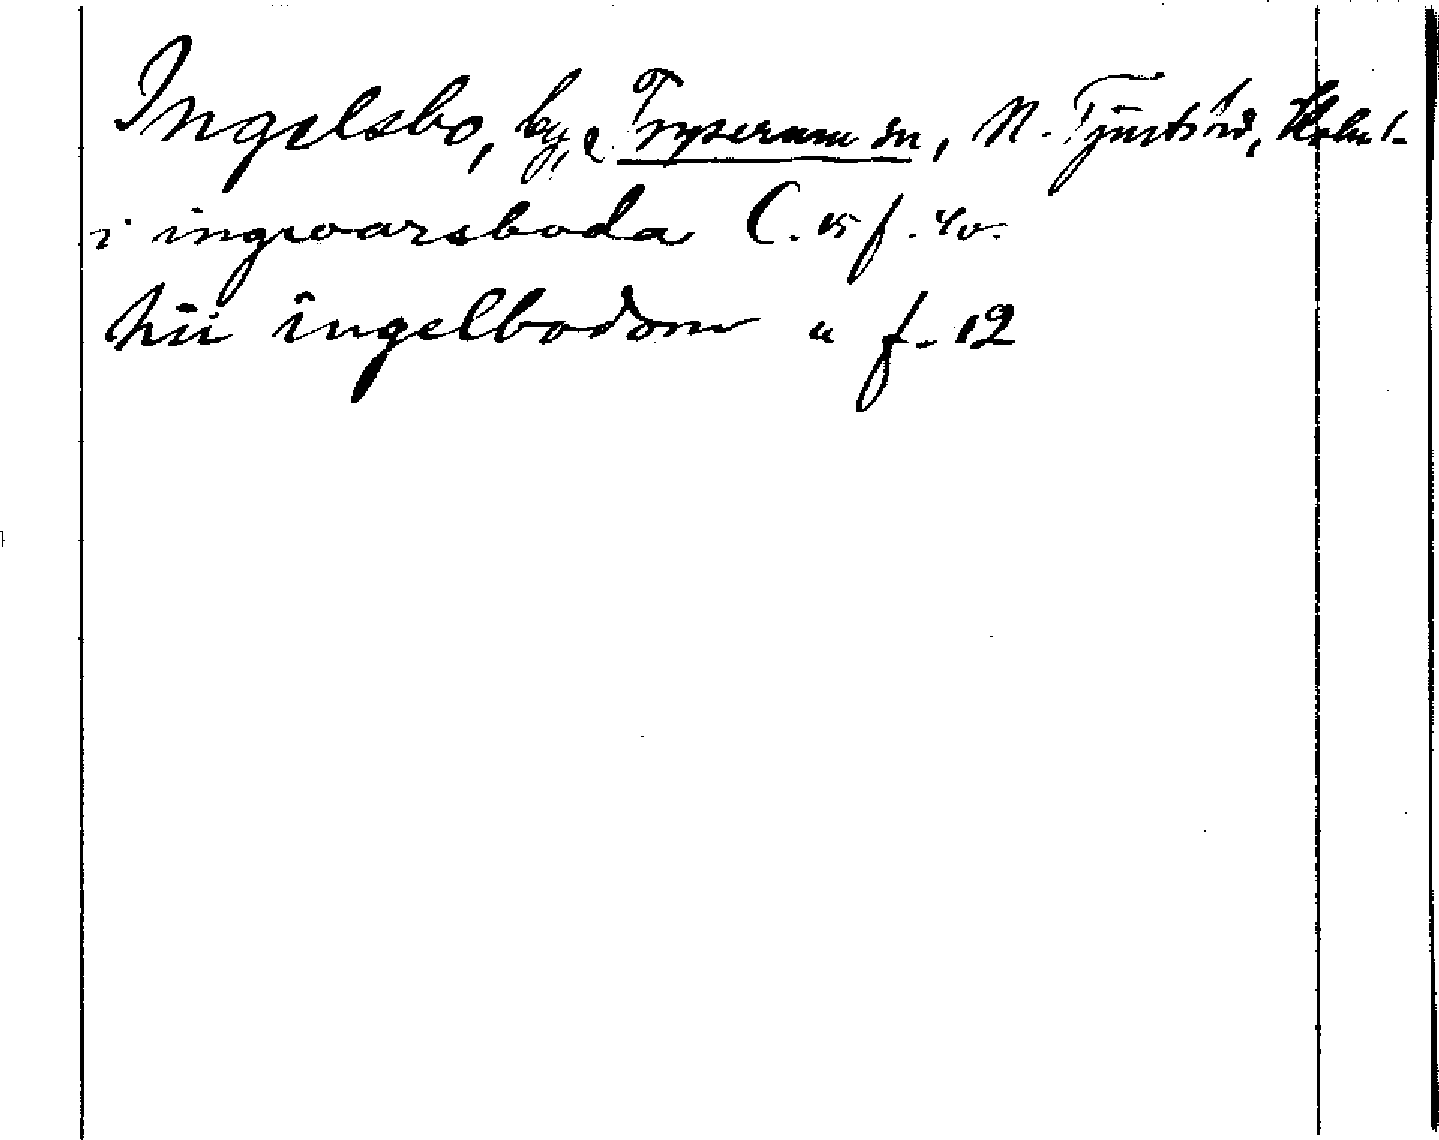 Ingelsbo, by, Tryserum sn, N. Tjusts hd,
i ingwarsboda C. 15 f. 4v.
hii ingelbodom " f. 12